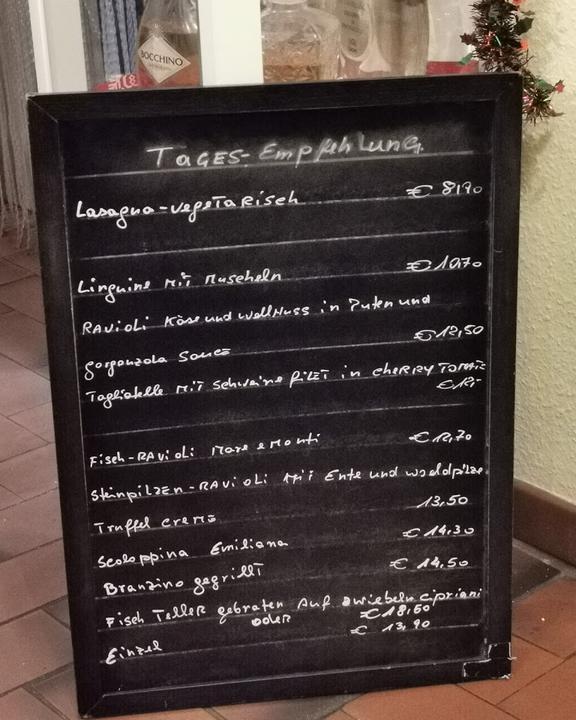 BOCCHINO
TAGES-Empfehlung
Lasagna-vegetarisch € 8,90
Linguine mit Muscheln € 10,70
RAVioLi Käse und wallNuss in Puten und
gorganzola sauce € 12,50
Tagliatelle mit schweine filet in cherry Tomate
Fisch-RAVioLi Mare e Monti € 12,70
Steinpilzen-RAVioLi mit Ente und waldpilze
Truffel creme 13,50
scaloppina Emiliana € 14,30
Branzino gegrillt € 14,50
Fisch TelleR gebraten Auf zwiebeln cipriani
oder € 18,60
Einzel € 13,90